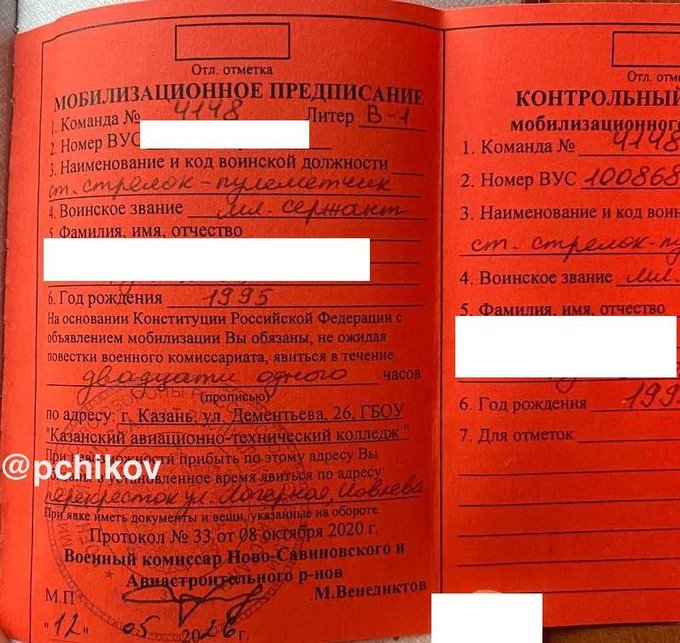 Отл. отметка
МОБИЛИЗАЦИОННОЕ ПРЕДПИСАНИЕ
1. Команда № 4148 Литер В-1
2. Номер ВУС
3. Наименование и код воинской должности
ст. стрелок-пулеметчик
4. Воинское звание мл. сержант
5. Фамилия, имя, отчество
6. Год рождения 1995
На основании Конституции Российской Федерации с
объявлением мобилизации Вы обязаны, не ожидая
повестки военного комиссариата, явиться в течение
двадцати одного часов
(прописью)
по адресу: г. Казань, ул. Дементьева, 26, ГБОУ
"Казанский авиационно-технический колледж"
При невозможности прибыть по этому адресу Вы
установленное время явиться по адресу
перекресток ул. Лагерная,
При явке иметь документы и вещи, указанные на обороте.
Протокол № 33 от 08 октября 2020 г.
Военный комиссар Ново-Савиновского и
Авиастроительного р-нов
М.П .М.Венедиктов
"12" 05 г.
@pchikov
Отл. отм
КОНТРОЛЬНЫЙ
мобилизационног
1. Команда № 4148
2. Номер ВУС 100868
3. Наименование и код воин
ст. стрелок-п
4. Воинское звание мл.
5. Фамилия, имя, отчество
6. Год рождения 199
7. Для отметок